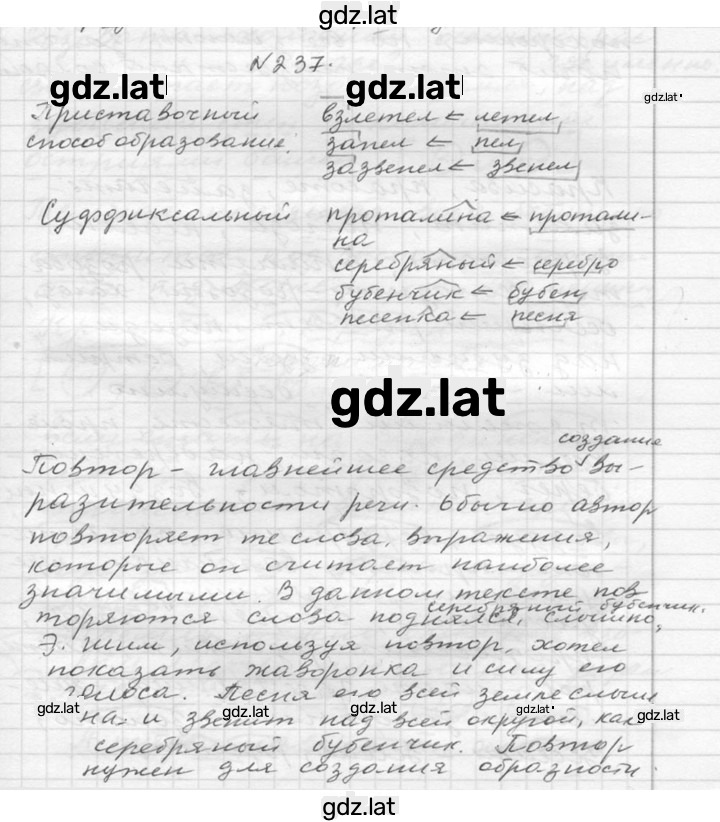 gdz.lat
№237.
gdz.lat gdz.lat gdz.lat
Приставочный взлетел ← летел
способ образование. запел ← пел
зазвенел ← звенел
Суффиксальный проталина ← протали-
на
серебряный ← серебро
бубенчик ← бубен
песенка ← песня
gdz.lat
создание
Повтор – главнейшее средство вы-
разительности речи. Обычно автор
повторяет те слова, выражения,
которые он считает наиболее
значимыми. В данном тексте пов
серебряный бубенчик.
торяются слова поднялся, слышно,
Э. Шим, используя повтор, хотел
показать жаворонка и силу его
голоса. Песня его всей земле слыш
gdz.lat gdz.lat gdz.lat gdz.lat gdz.lat
на и звенит над всей округой, как
серебряный бубенчик. Повтор
нужен для создания образности.
gdz.lat